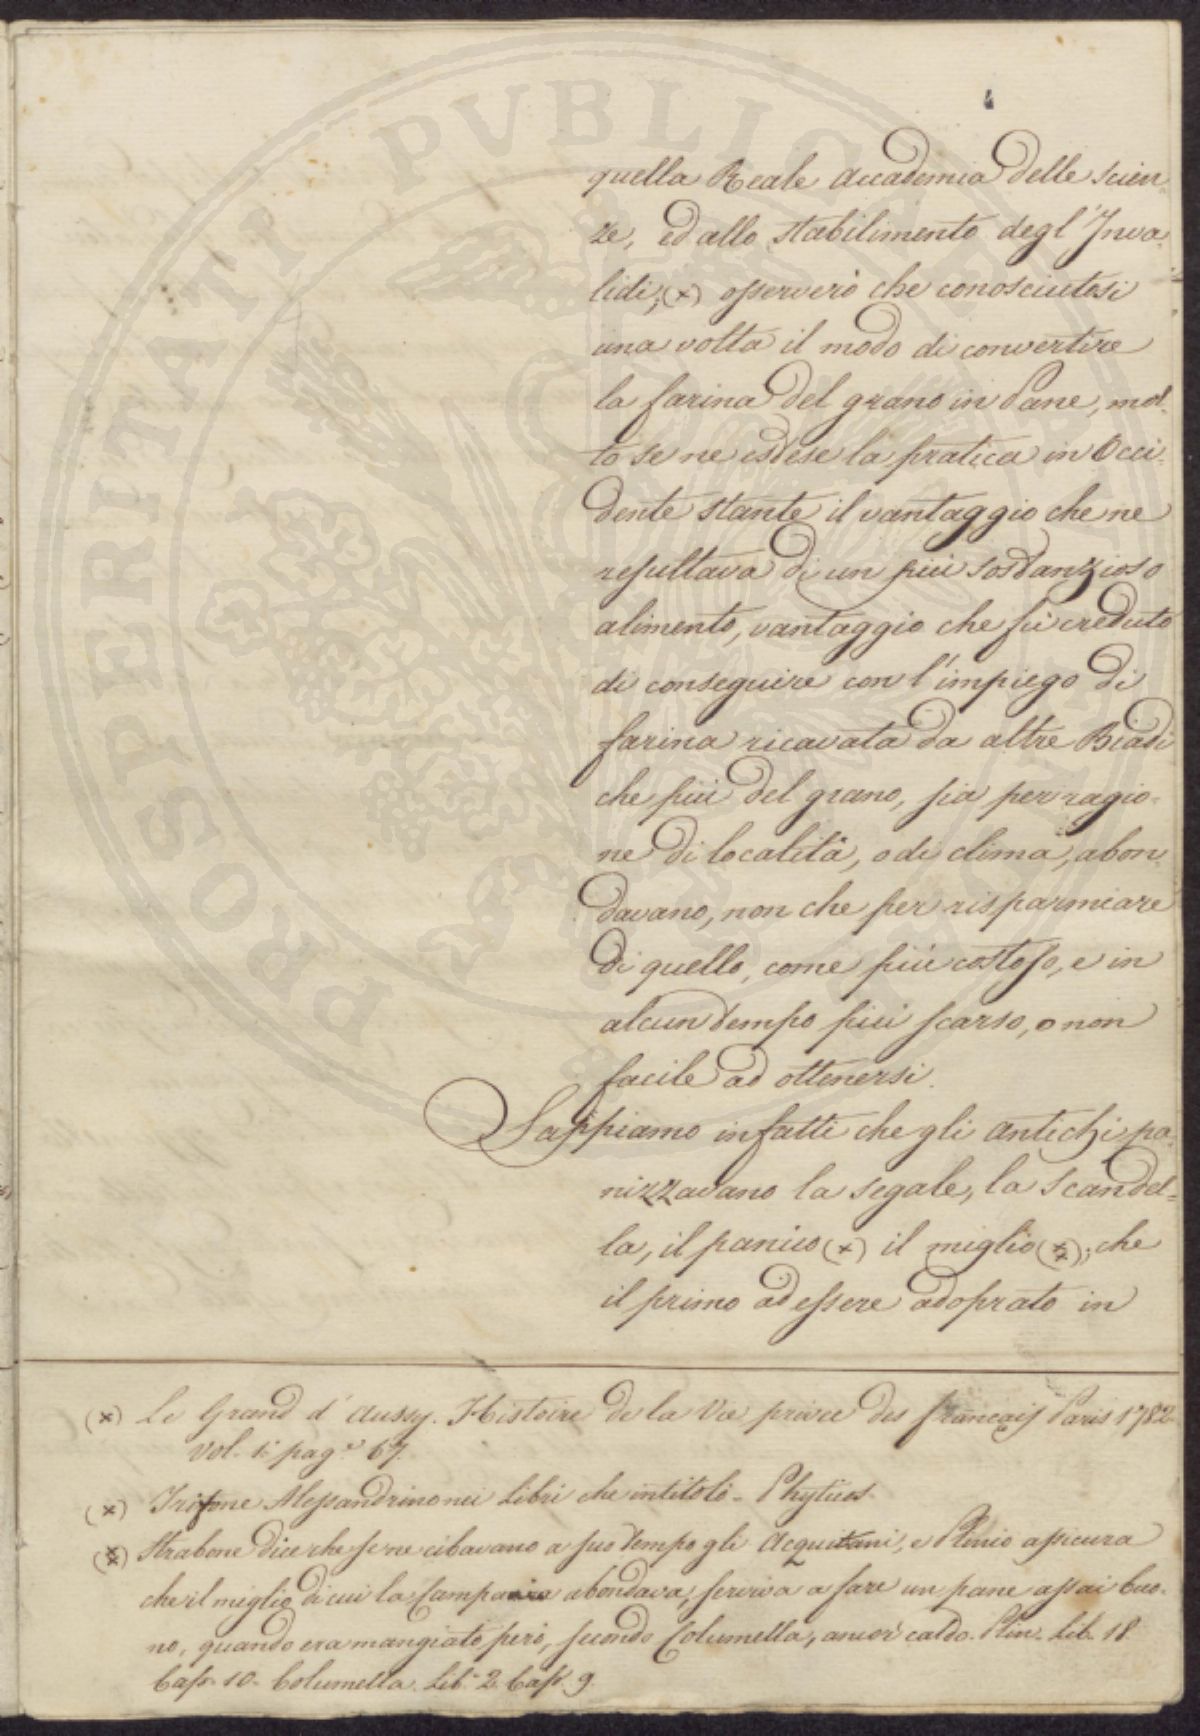 PROSPERITATI PVBLICAE
quella Reale Accademia delle Scien-
ze, ed allo stabilimento degl'Inva-
lidi; (x) osserverò che conosciutosi
una volta il modo di convertire
la farina del grano in Pane, mol-
to se ne estese la pratica in Occi-
dente stante il vantaggio che ne
resultava di un più sostanzioso
alimento, vantaggio che fù creduto
di conseguire con l'impiego di
farina ricavata da altre Biade
che più del grano, sia per ragio-
ne di località, o di clima, abon-
davano, non che per risparmiare
di quello, come più costoso, e in
alcun tempo più scarso, o non
facile ad ottenersi.
Sappiamo infatti che gli antichi pa-
nizzavano la segale, la Scandel-
la, il panico (x) il miglio (xx); che
il primo ad essere adoprato in
(x) Le Grand d'Aussy. Histoire de la Vie privée des français Paris 1782
Vol. 1: pag.e 67.
(x) Trifone Alessandrino nei Libri che intitolò - Phyticos.
(xx) Strabone dice che se ne cibavano a suo tempo gli Acquitani, e Plinio assicura
che il miglio di cui la Campania abondava, serviva a fare un pane assai buo-
no, quando era mangiato però, secondo Columella, ancor caldo. Plin. Lib. 18
Cap. 10. Columella. Lib. 2. Cap. 9.